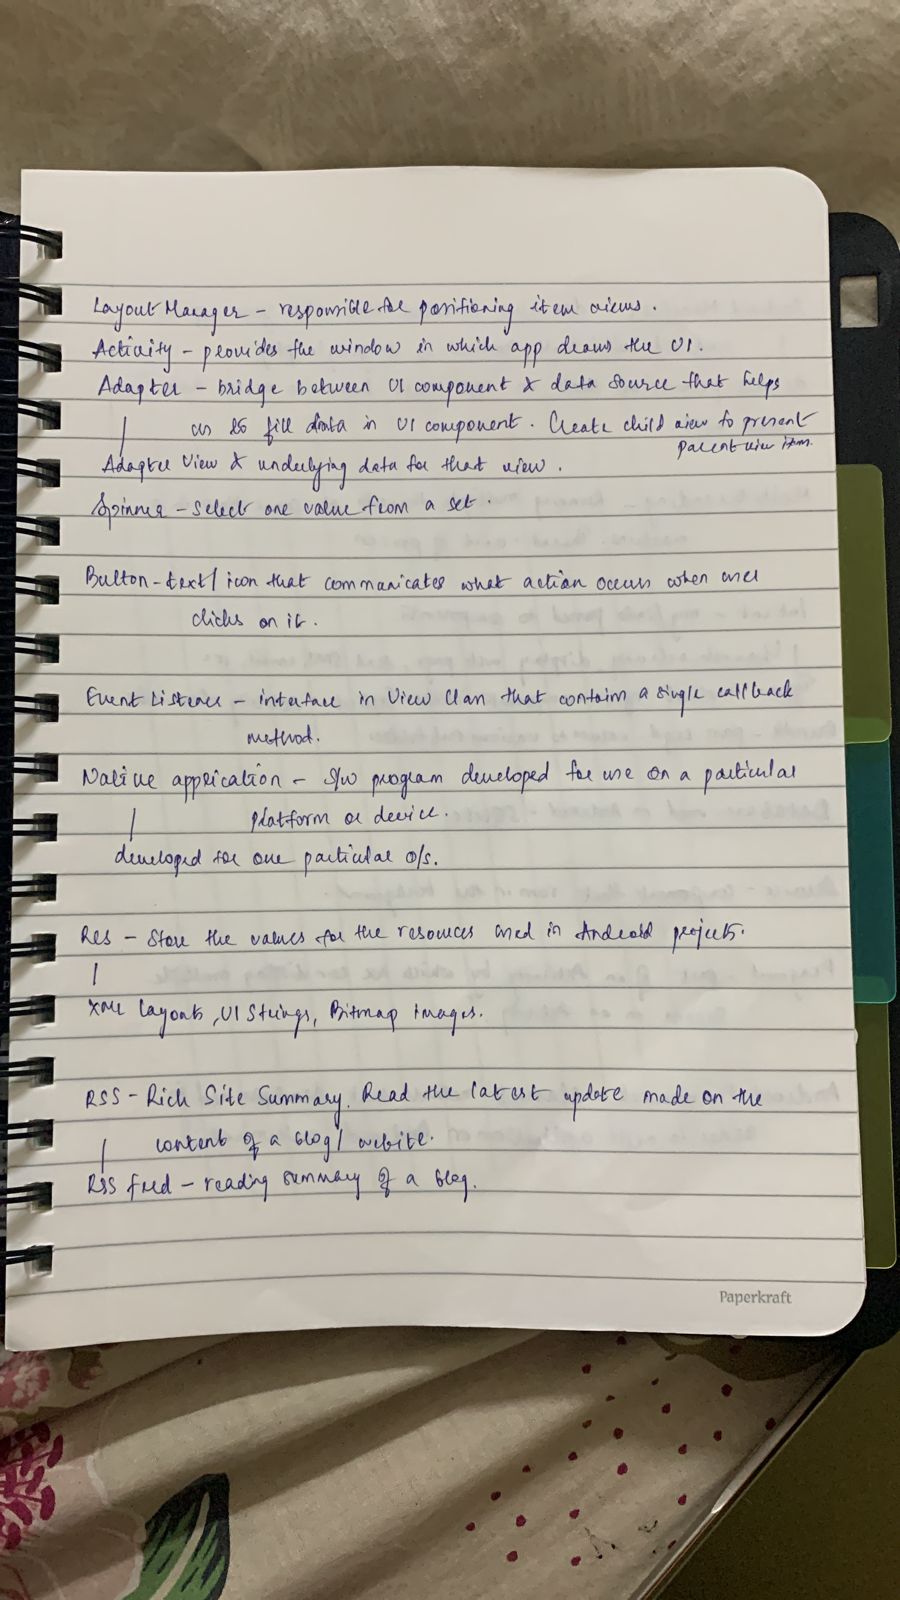 Layout Manager - responsible for positioning item views.
Activity - provides the window in which app draws the UI.
Adapter - bridge between UI component & data source that helps
us to fill data in UI component. Create child view to present
parent view item.
Adapter View & underlying data for that view.
Spinner - select one value from a set.
Button - text/icon that communicates what action occurs when user
clicks on it.
Event Listener - interface in View Class that contains a single callback
method.
Native application - S/w program developed for use on a particular
platform or device.
developed for one particular o/s.
Res - Store the values for the resources used in Android projects.
XML layouts, UI Strings, Bitmap images.
RSS - Rich Site Summary. Read the latest update made on the
content of a blog/ website.
RSS feed - reading summary of a blog.
Paperkraft